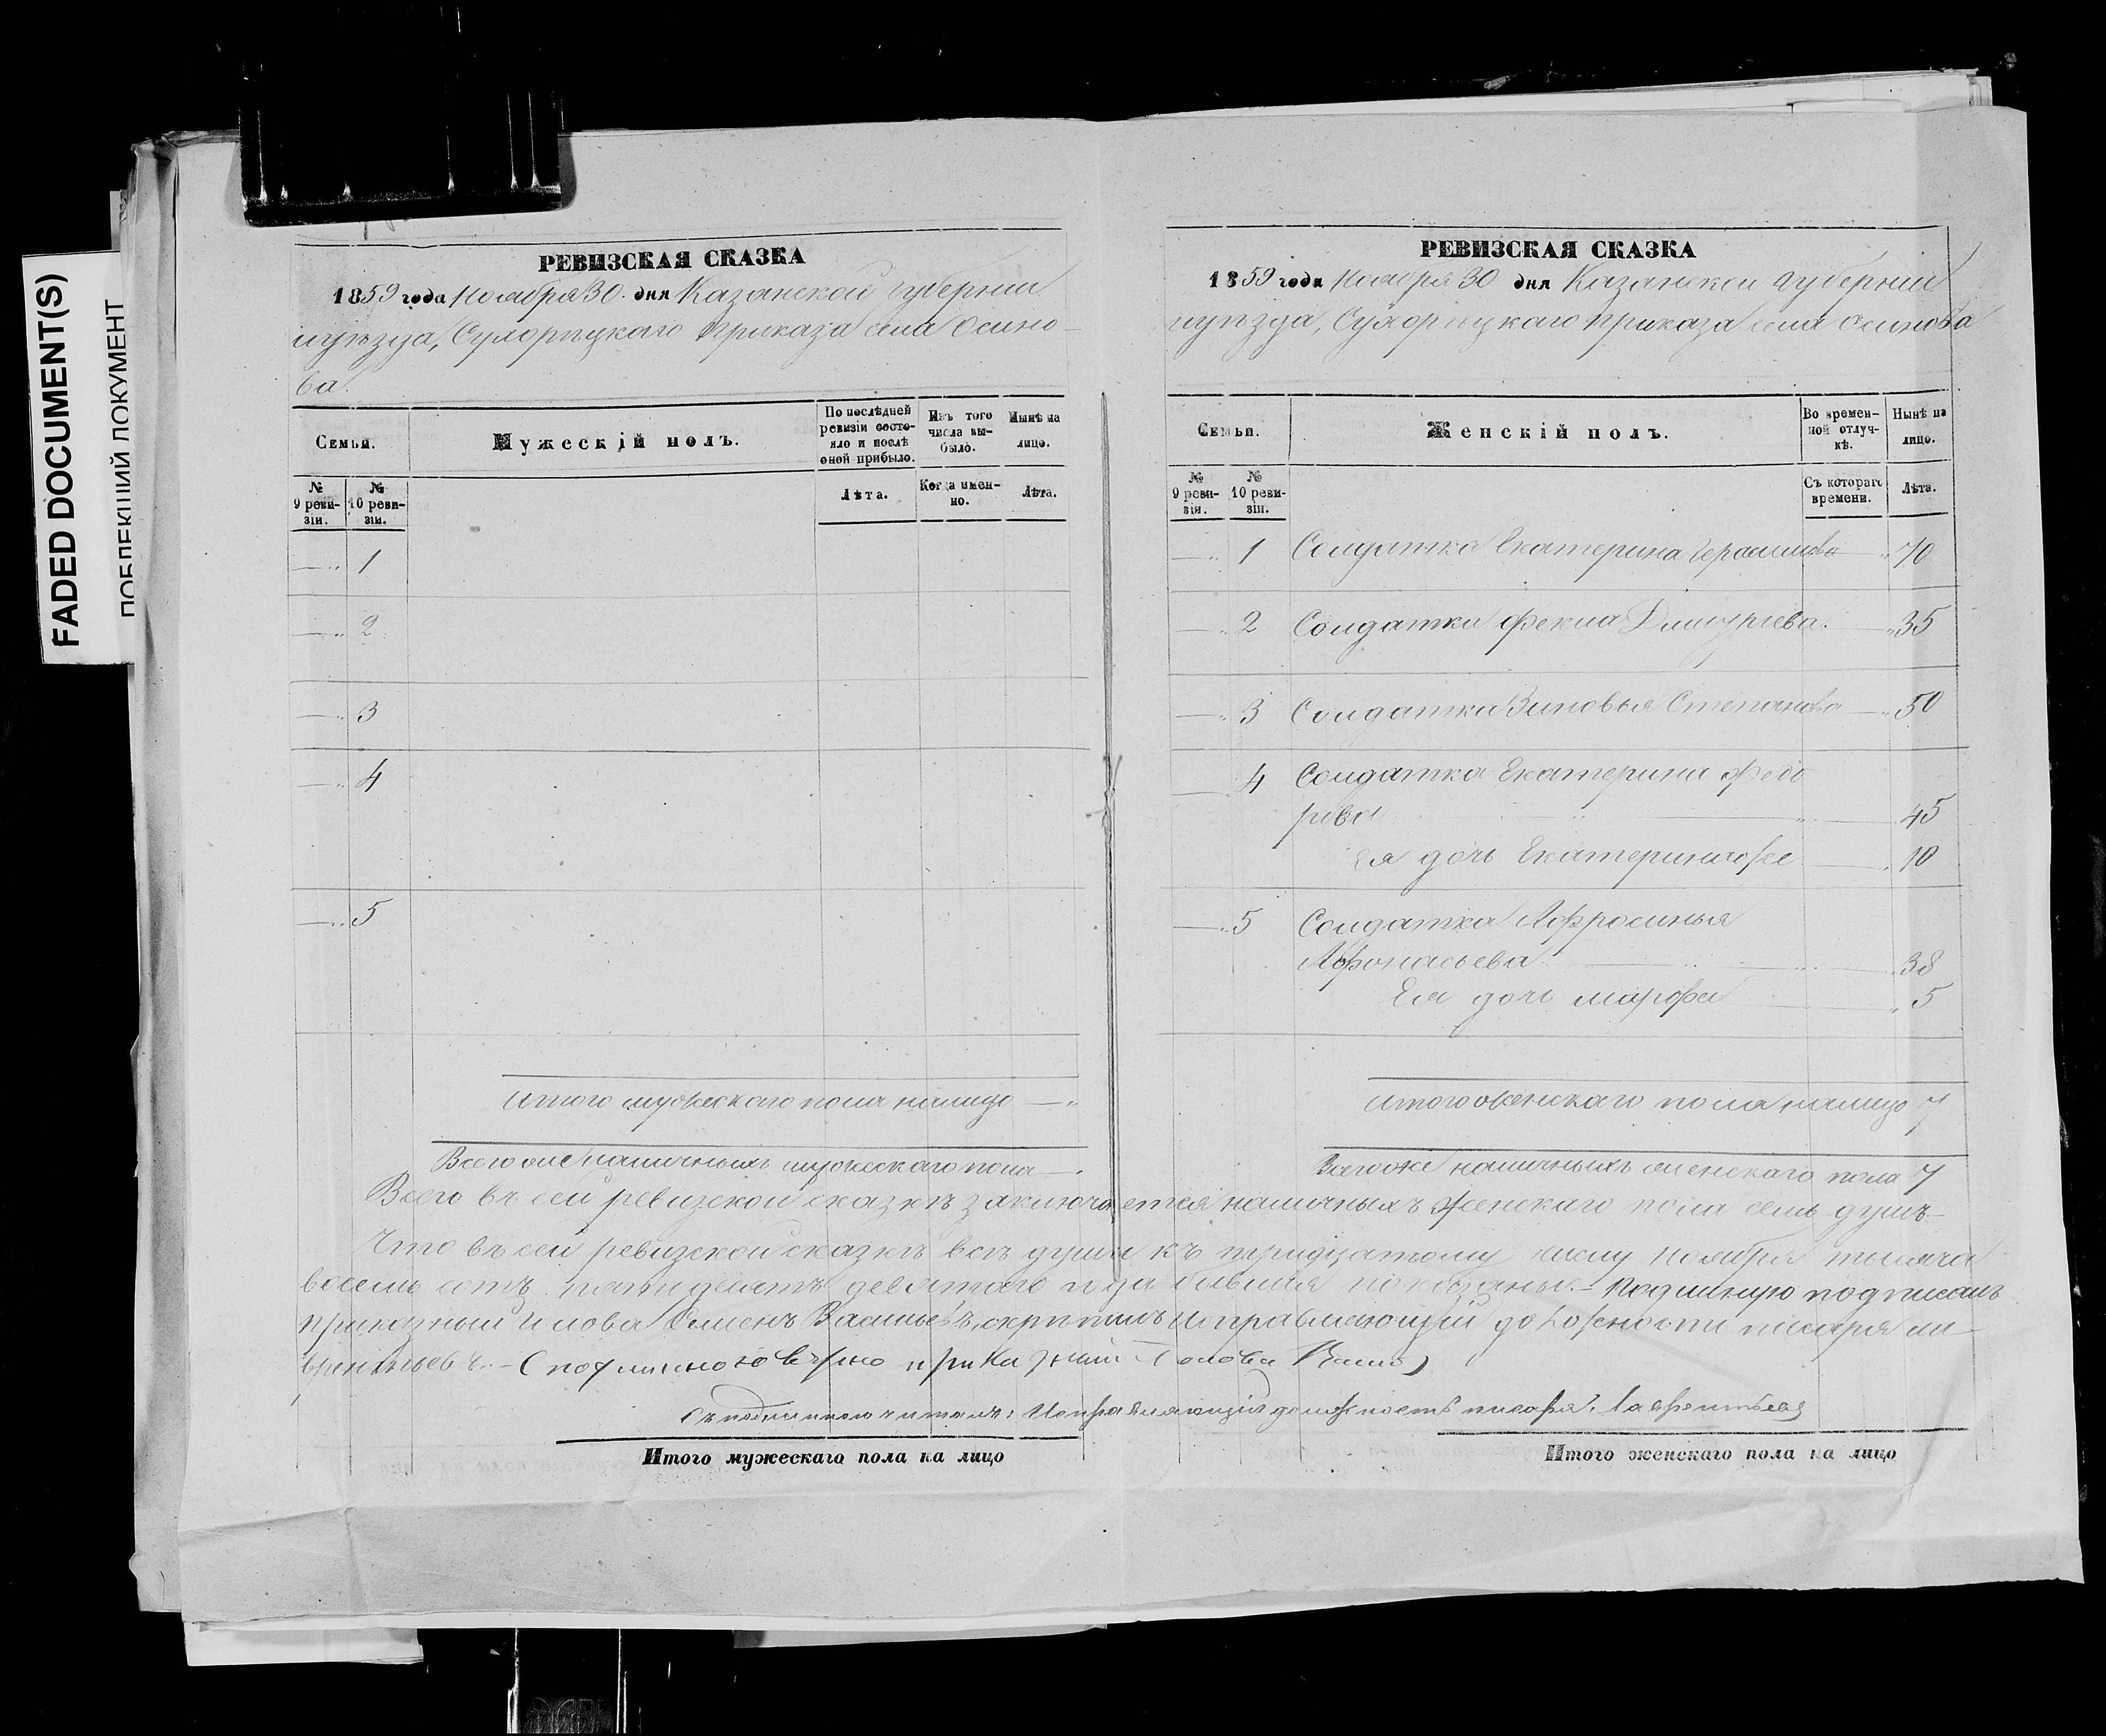 FADED DOCUMENT(S)
ПОБЛЕКШИЙ ДОКУМЕНТ
РЕВИЗСКАЯ СКАЗКА
1859 года Ноября 30. дня Казанской губерніи
и уѣзда, Сухорѣцкаго Приказа села Осино-
ва.
Семьи.
Мужескій полъ.
По послѣдней ревизіи состояло и послѣ оной прибыло.
Изъ того числа выбыло.
Нынѣ на лицо.
№ 9 ревизіи.
№ 10 ревизіи.
Лѣта.
Когда именно.
Лѣта.
1
2
3
4
5
Итого мужескаго пола налицо — „
Всего же наличныхъ мужескаго пола —
РЕВИЗСКАЯ СКАЗКА
1859 года Ноября 30 дня Казанской губерніи
и уѣзда, Сухорѣцкаго приказа села Осинова
Семьи.
Женскій полъ.
Во временной отлучкѣ.
Нынѣ на лицо.
№ 9 ревизіи.
№ 10 ревизіи.
Съ котораго времени.
Лѣта.
1 Солдатка Екатерина Герасимова 70
2 Солдатка Фекла Дмитріева. 35
3 Солдатка Зиновья Степанова 50
4 Солдатка Екатерина Федо
рова 45
Ея дочь Екатерина 10
5 Солдатка Афросинья
Афонасьева 38
Ея дочь Марфа 5
Итого женскаго пола налицо 7
Всего же наличныхъ женскаго пола 7
Всего въ сей ревизской сказкѣ заключается наличныхъ женскаго пола семь душъ
Что въ сей ревизской сказкѣ всѣ души къ тридцатому числу Ноября тысяча
восемь сотъ пятидесятъ девятаго года бывшія показаны. – Подлинную подписалъ
Приказный Голова Семенъ Васильевъ, скрѣпилъ Исправляющій должность писаря Ла-
врентьевъ. – Съ подлинною вѣрно приказный Голова
Съ подлинною читалъ: Исправляющій должность писаря. Лаврентьевъ
Итого мужескаго пола на лицо
Итого женскаго пола на лицо